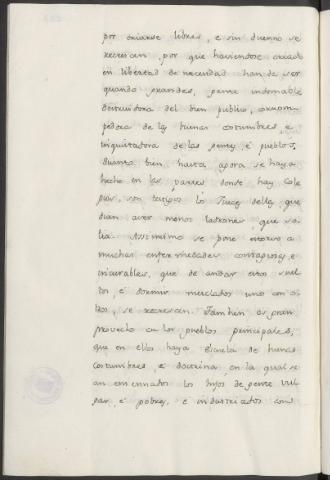 por criarse libres, e sin duenno se
recrescan, por que haviendose criado
en libertad de necesidad han de ser
quando grandes, gente indomable
destruidora del bien publico, corrom-
pedora de las buenas costumbres, e
inquietadora de las gentes, é pueblos,
quanto bien, hasta agora se haya
hecho en las partes donde hay Cole
gios, son testigos los Juezes dellas, que
dian aver menos ladrones, que so-
lia. Assimismo se pone estorvo a
muchas enfermedades contagiosas, e
incurables, que de andar estos suel-
tos, é dormir mezclados uno con o-
tros, se recrescan. Tambien es gran
provecho en los pueblos principales,
que en ellos haya Escuela de buenas
costumbres, e doctrina, en la qual se-
an ensennados los hijos de gente vul
gar, é pobres, e industriados como